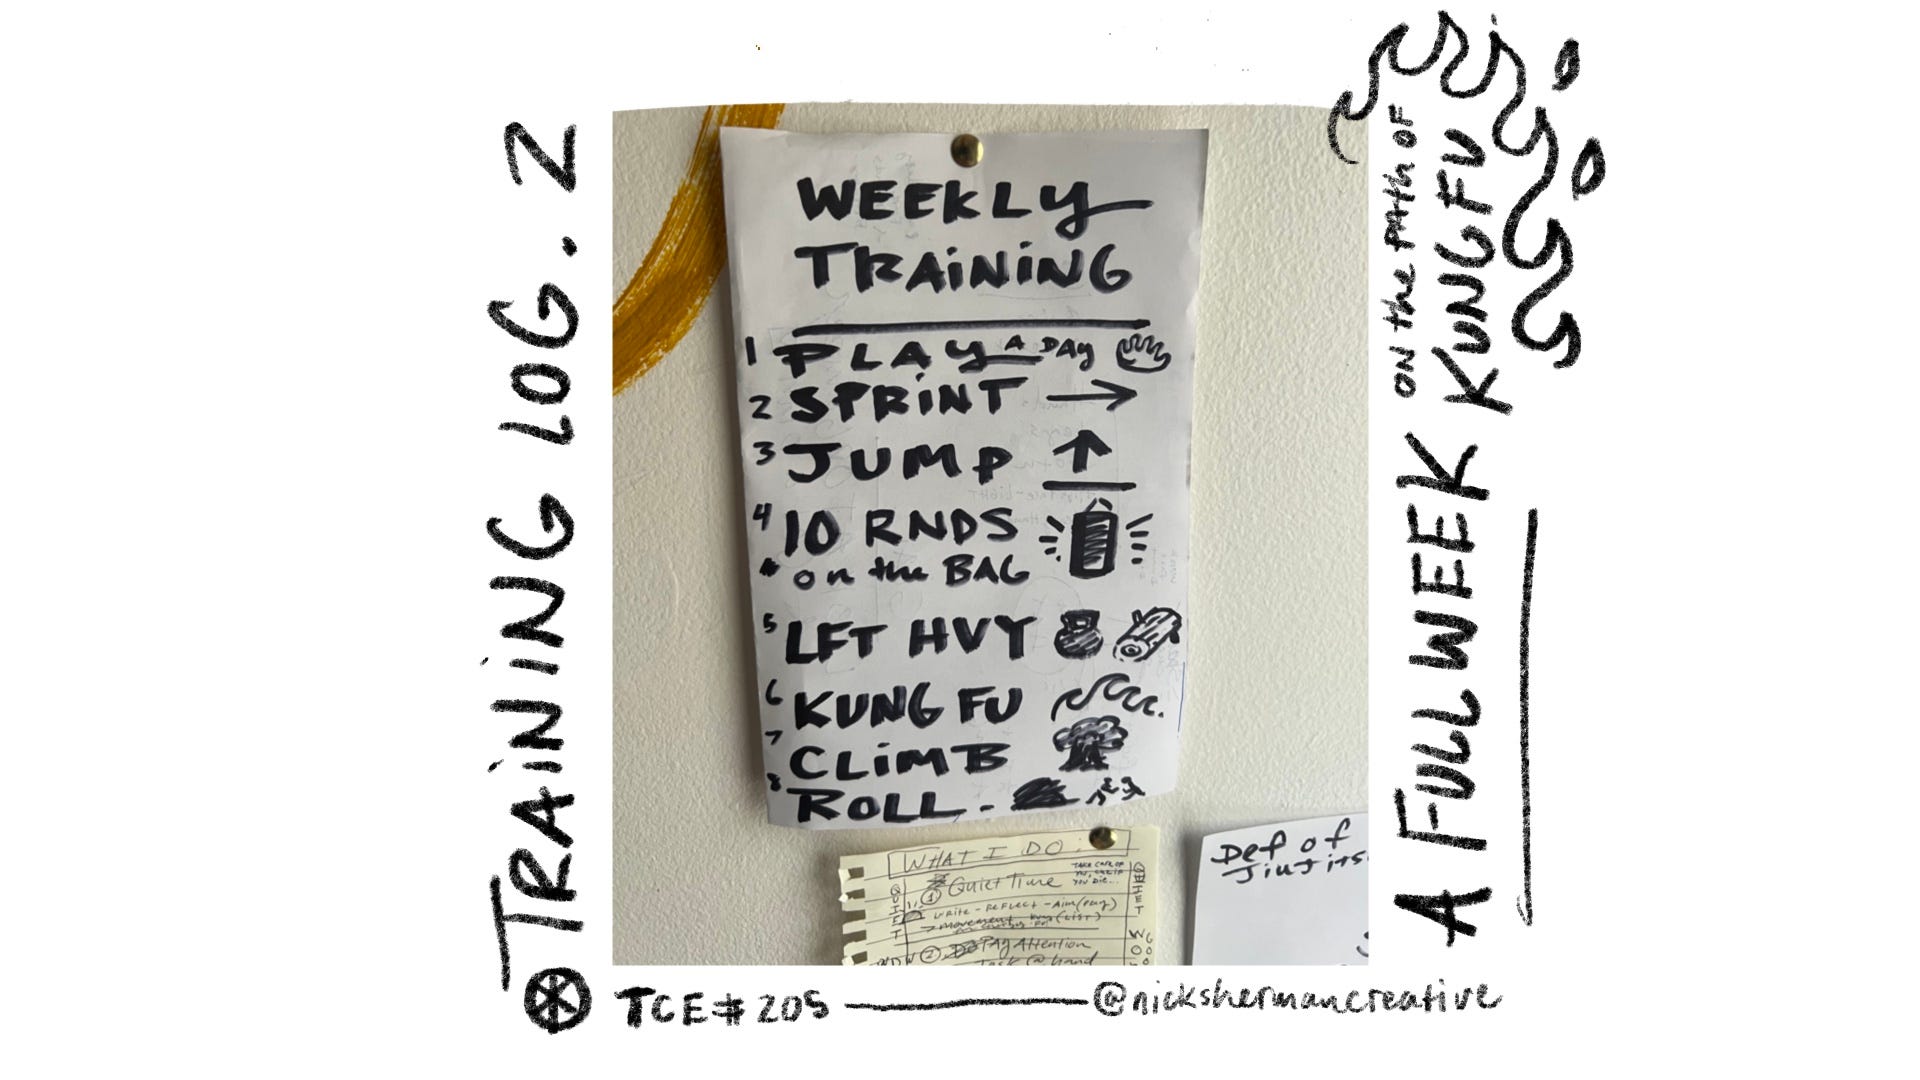 TRAINING LOG. 2
WEEKLY
TRAINING
1 PLAY A DAY
2 SPRINT
3 JUMP
4 10 RNDS
on the BAG
5 LFT HVY
6 KUNG FU
7 CLIMB
8 ROLL.
WHAT I DO.
Quiet Time
1
TAKE CARE OF
YOU DIE...
QUIET
write - reflect - Aim (pray)
movement
2 PAY Attention
Task @ hand
QUIET
WOO
Def of
JiuJits
A FULL WEEK
ON the PATH OF
KUNG FU
TCE# 205
@nickshermancreative